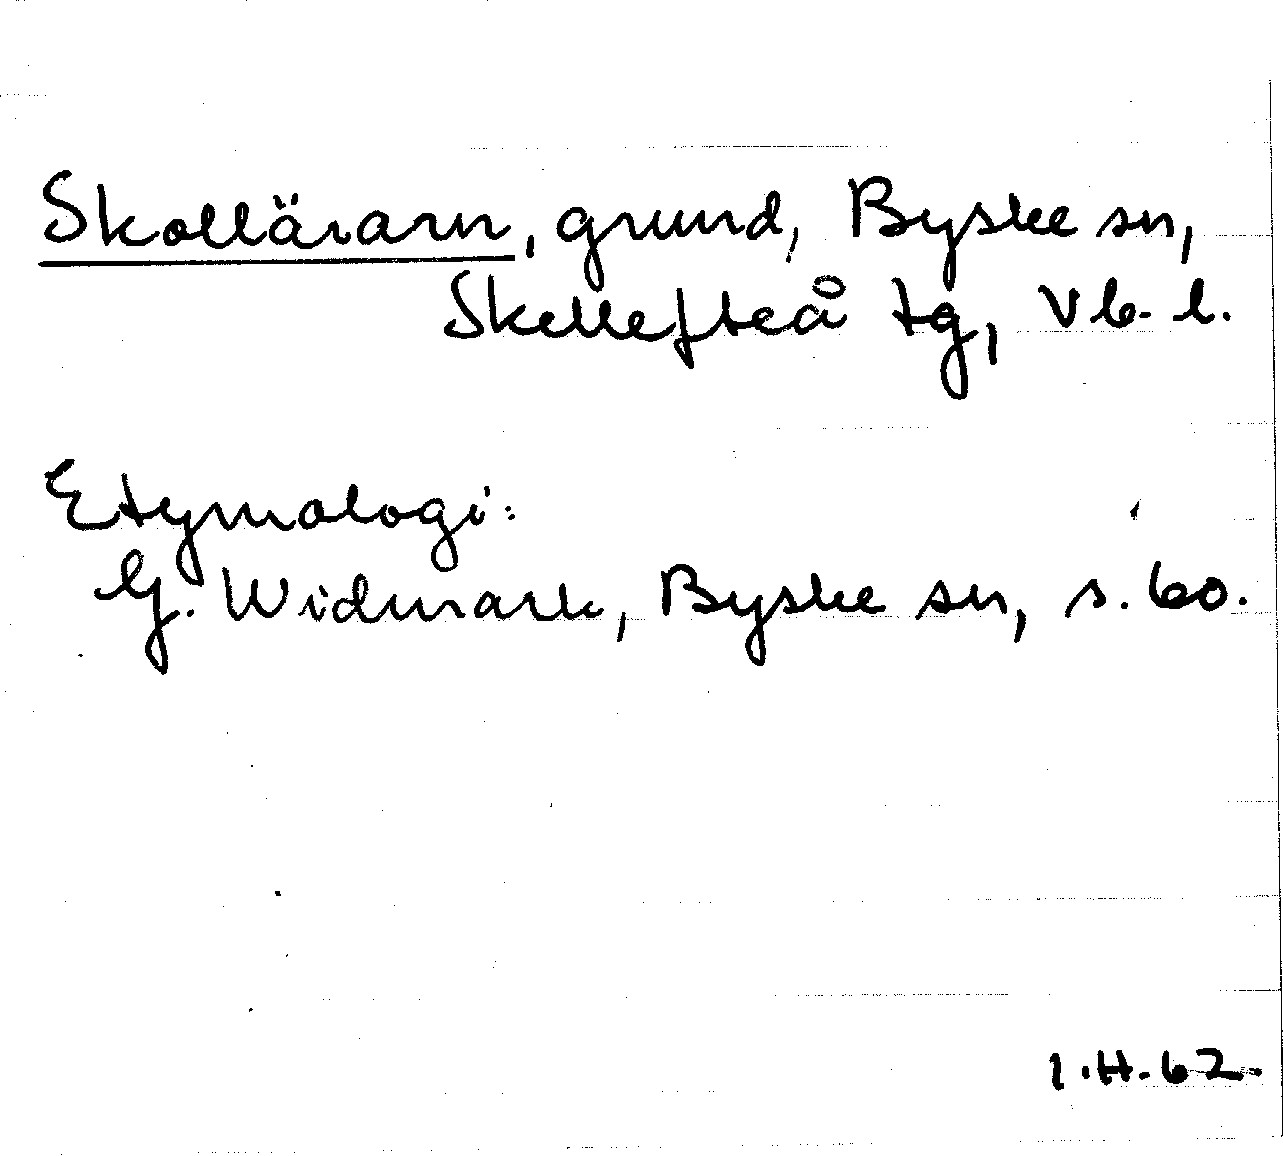 Skollärarn, grund, Byske sn,
Skellefteå tg, Vb. l.
Etymologi:
G. Widmark, Byske sn, s. 60.
I.H. 62.